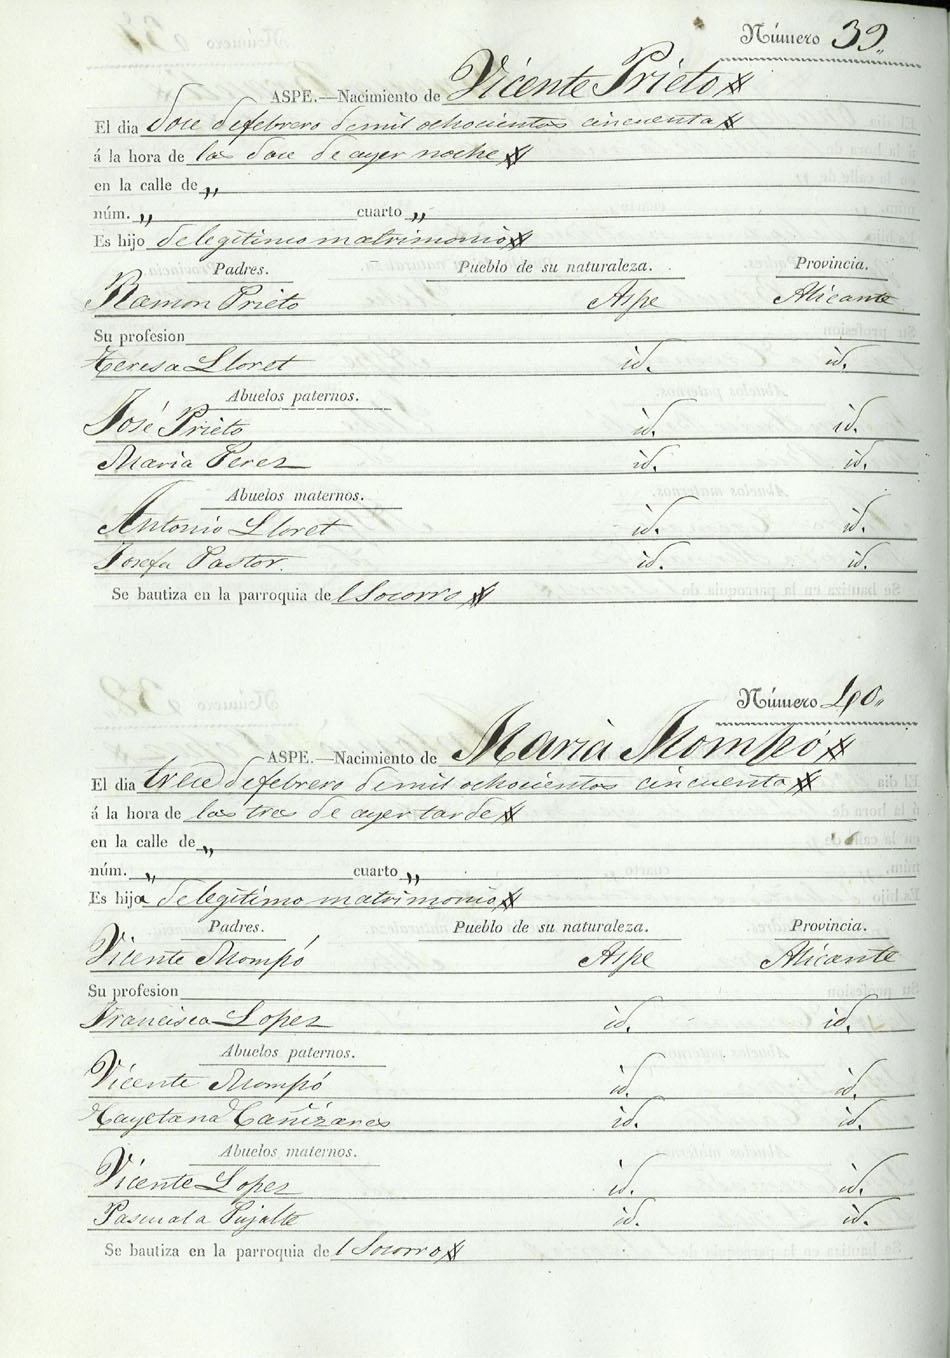 Número 39.
ASPE.—Nacimiento de Vicente Prieto
El dia doce de febrero de mil ochocientos cincuenta
á la hora de las doce de ayer noche
en la calle de „
núm. „ cuarto „
Es hijo de legitimo matrimonio
Padres. Pueblo de su naturaleza. Provincia.
Ramon Prieto Aspe Alicante
Su profesion
Teresa Lloret id. id.
Abuelos paternos.
José Prieto id. id.
Maria Perez id. id.
Abuelos maternos.
Antonio Lloret id. id.
Josefa Pastor. id. id.
Se bautiza en la parroquia del Socorro
Número 40.
ASPE.—Nacimiento de Maria Mompó
El dia trece de febrero de mil ochocientos cincuenta
á la hora de las tres de ayer tarde
en la calle de „
núm. „ cuarto „
Es hija de legitimo matrimonio
Padres. Pueblo de su naturaleza. Provincia.
Vicente Mompó Aspe Alicante
Su profesion
Francisca Lopez id. id.
Abuelos paternos.
Vicente Mompó id. id.
Cayetana Cañizares id. id.
Abuelos maternos.
Vicente Lopez id. id.
Pascuala Pujalte id. id.
Se bautiza en la parroquia del Socorro